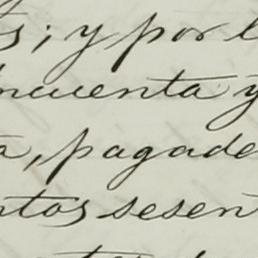 s; y por l
incuenta y
a, pagade
ntos sesen